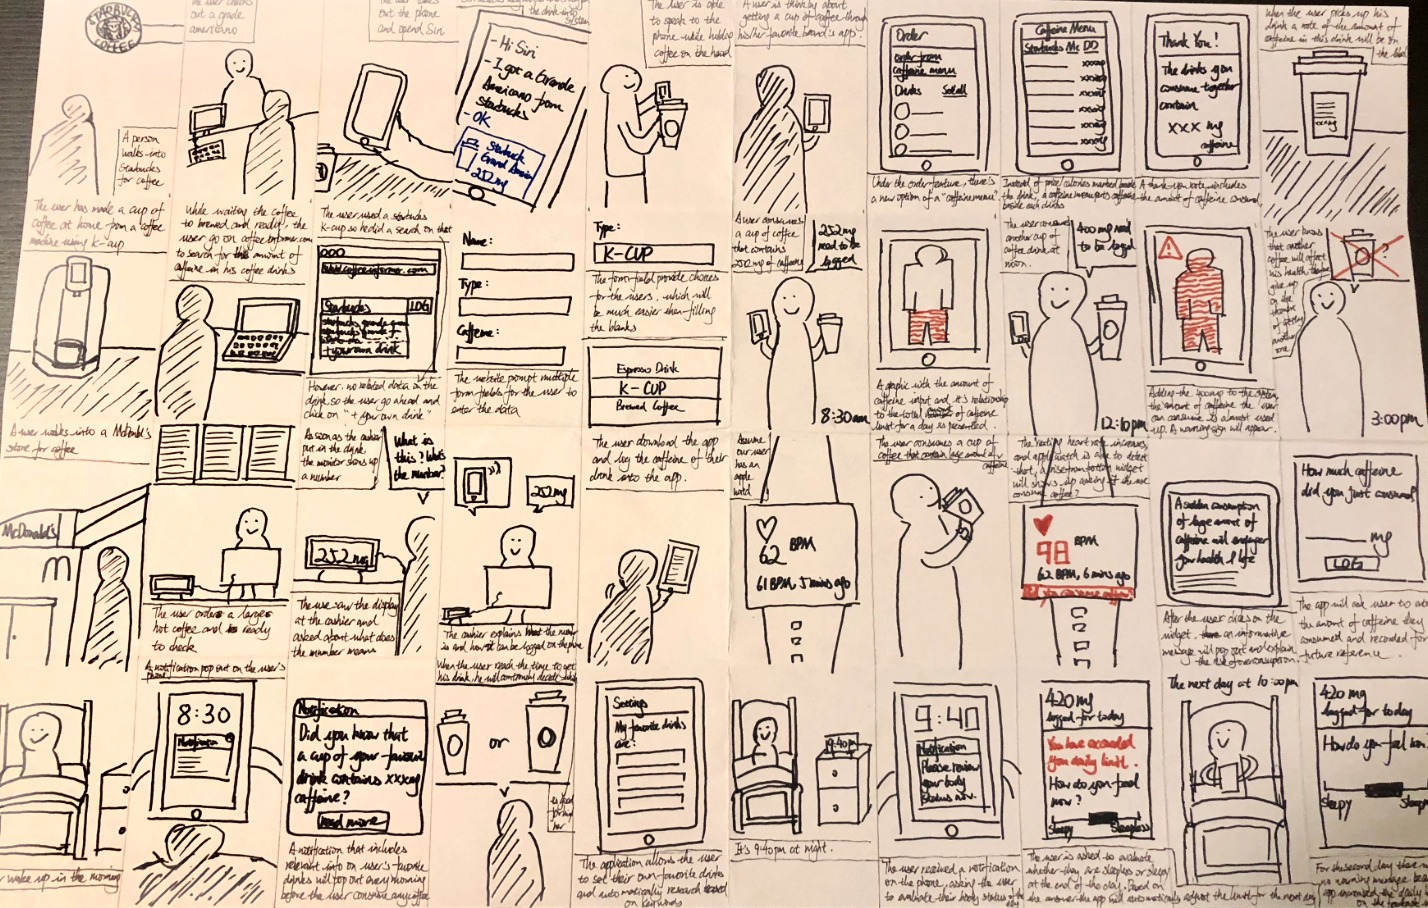 STARBUCKS
COFFEE
A person
walks into
Starbucks
for coffee
out a grande
americano
out the phone
and opend Siri
the drink into
system
- Hi Siri
- I got a Grande
Americano from
Starbucks
- OK
Starbuck
Grand
252 mg
The user is able
to speak to the
phone while holding
coffee on the hand
A user is thinking about
getting a cup of coffee through
his/her favorite brand's app.
Order
order from
caffeine menu
Drinks See all
Under the order feature, there's
a new option of a "caffeine menu"
Caffeine Menu
Starbucks Mc DD
xxxmg
xxxmg
xxxmg
xxxmg
xxxmg
Instead of price/calories marked beside
the drink, a caffeine menu puts caffeine
beside each drinks
Thank You!
The drinks you
consume together
contain
XXX mg
caffeine
A thank-you note includes
the amount of caffeine consumed.
When the user picks up his
drink a note of the amount of
caffeine in this drink will be on
the label
The user has made a cup of
coffee at home from a coffee
machine using K-cup
While waiting the coffee
to brewed and ready, the
user go on coffeeinformer.com
to search for the amount of
caffeine in his coffee drinks
The user used a starbucks
K-cup so he did a search on that
Starbucks LOG
+ your own drink
However, no related data on the
drink, so the user go ahead and
click on "+ your own drink"
Name:
Type:
Caffeine:
The website prompt multiple
form fields for the user to
enter the data
Type:
K-CUP
The form field provide choices
for the users, which will
be much easier then filling
the blanks
Espresso Drink
K-CUP
Brewed Coffee
A user consumes
a cup of coffee
that contains
252 mg of caffeine
252 mg
need to be
logged
8:30am
A graphic with the amount of
caffeine input and it's relationship
to the total of caffeine
limit for a day is presented.
The user consume
another cup of
coffee drink at
noon.
400 mg need
to be logged
12:10pm
Adding the 400mg to the system,
the amount of caffeine the user
can consume is almost used
up. A warning sign will appear.
The user knows
that another
coffee will affect
his health therefore
give up
on the
another one
3:00pm
A user walks into a McDonald's
store for coffee
McDonald's
The user orders a large
hot coffee and is ready
to check
As soon as the cashier
put in the drink
the monitor shows up
a number
What is
this? What's
the number?
252 mg
The user saw the display
at the cashier and
asked about what does
the number means
252 mg
The cashier explains what the number
is and how it can be logged on the phone
The user download the app
and log the caffeine of their
drink into the app.
Assume
our user
has an
apple
watch
62 BPM
61 BPM, 5 mins ago
The user consumes a cup of
coffee that contain large amount of
caffeine
The resting heart rate increases
and apple watch is able to detect
that, a rise-from-bottom widget
will show up asking if the user
consume coffee?
98 BPM
62 BPM, 6 mins ago
A sudden consumption
of large amount of
caffeine will endanger
your health & life
After the user clicks on the
widget, an informative
message will pop out and explain
the risk of overconsumption.
How much caffeine
did you just consumed?
mg
LOG
The app will ask user to enter
the amount of caffeine they
consumed and recorded for
future reference.
wake up in the morning
A notification pop out on the user's
phone
8:30
Notification
Notification
Did you know that
a cup of your favourite
drink contains xxxmg
caffeine?
Read more
A notification that includes
relevant info on user's favorite
drinks will pop out every morning
before the user consume any coffee
When the user reach the time to get
his drink, he will continuously decide
or
Settings
My favorite drinks
are:
The application allows the user
to set their own favorite drinks
and automatically research based
on keywords
9:40pm
It's 9:40pm at night.
9:40
Notification
Please review
your body
status now.
The user received a notification
on the phone, asking the user
to evaluate their body status of the
day
420 mg
logged for today
You have exceeded
you daily limit.
How do you feel
now?
Sleepy Sleepless
The user is asked to evaluate
whether they are sleepless or sleepy
at the end of the day. Based on
the answer the app will automatically adjust the limit for the next day
The next day at 10:00pm
420 mg
logged for today
How do you feel now?
Sleepy
For the second day there
no warning message because
app increased the daily